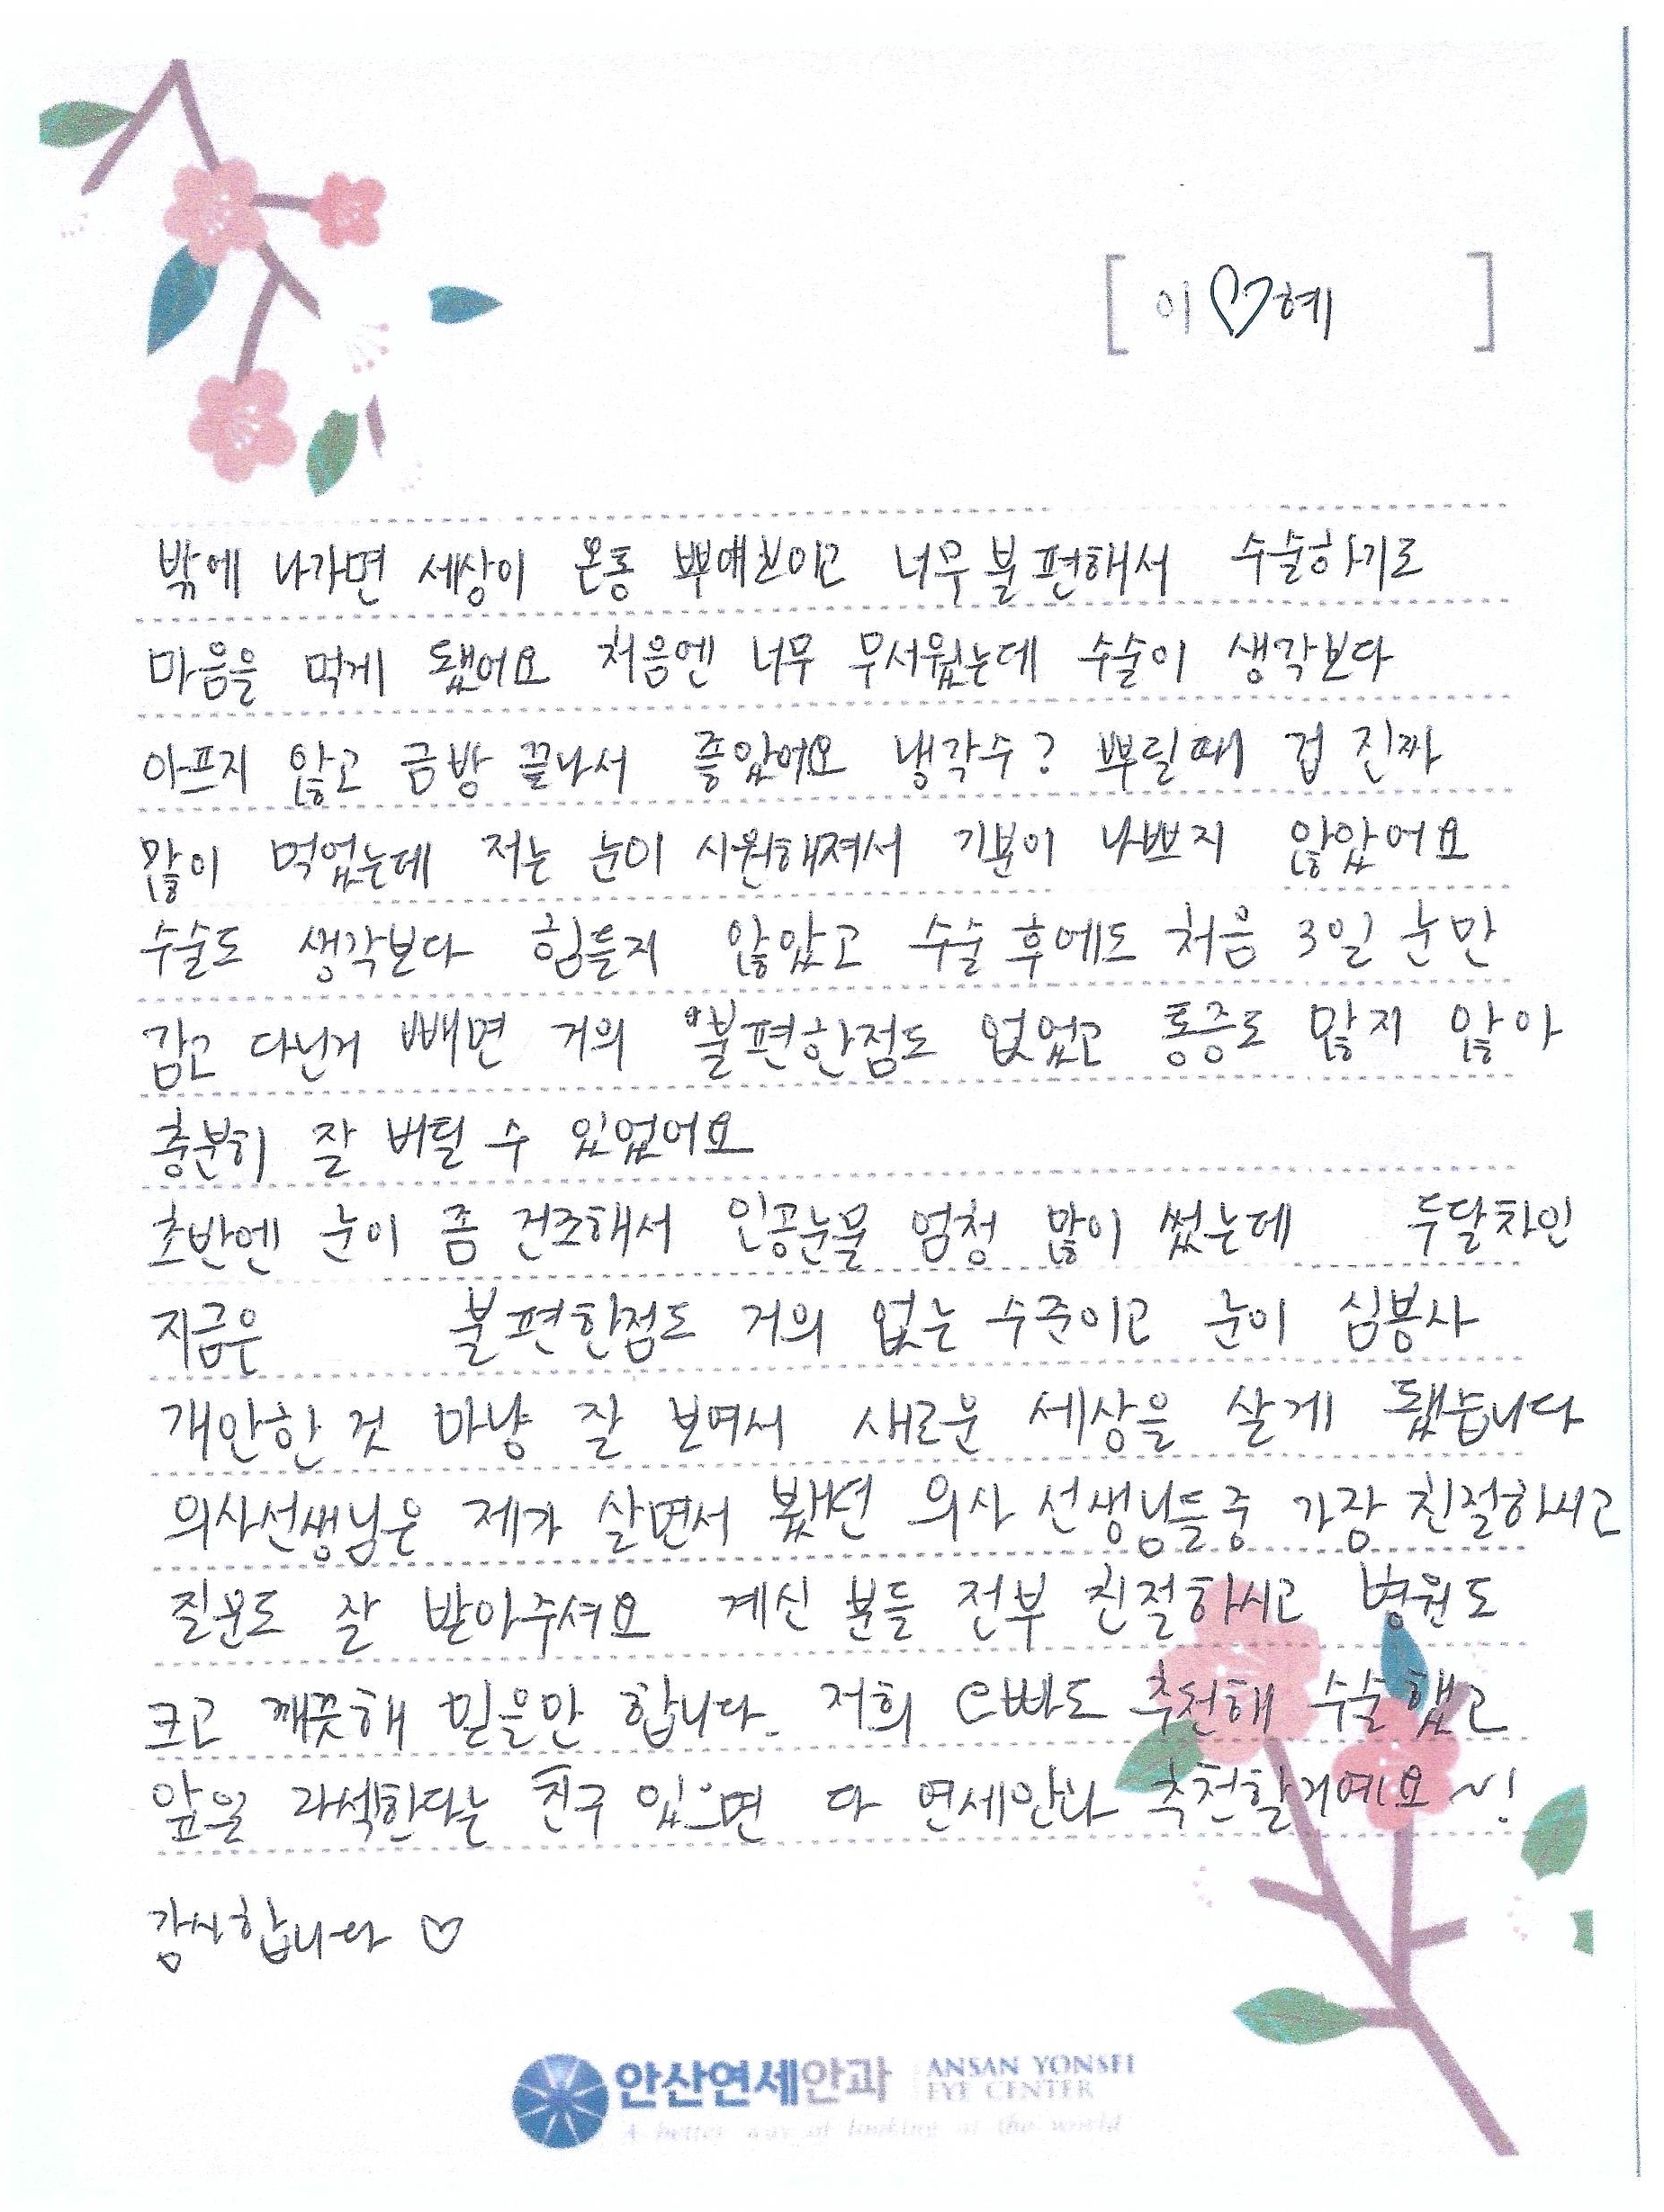 [ 이♡혜 ]
밖에 나가면 세상이 온통 뿌옇보이고 너무 불편해서 수술하기로
마음을 먹게 됐어요 처음엔 너무 무서웠는데 수술이 생각보다
아프지 않고 금방 끝나서 좋았어요 냉각수? 뿌릴때 겁 진짜
많이 먹었는데 저는 눈이 시원해져서 기분이 나쁘지 않았어요
수술도 생각보다 힘들지 않았고 수술 후에도 처음 3일 눈만
감고 다닌거 빼면 거의 불편한점도 없었고 통증도 많지 않아
충분히 잘 버틸 수 있었어요
초반엔 눈이 좀 건조해서 인공눈물 엄청 많이 썼는데 두달차인
지금은 불편한점도 거의 없는 수준이고 눈이 심봉사
개안한 것 마냥 잘 보여서 새로운 세상을 살게 됐습니다
의사선생님은 제가 살면서 봤던 의사 선생님들중 가장 친절하시고
질문도 잘 받아주셔요 계신 분들 전부 친절하시고 병원도
크고 깨끗해 믿을만 합니다. 저희 오빠도 추천해 수술했고
앞을 라섹한다는 친구 있으면 다 연세안과 추천할거예요~!
감사합니다 ♡
안산연세안과 ANSAN YONSEI
EYE CENTER
A better way of looking at the world